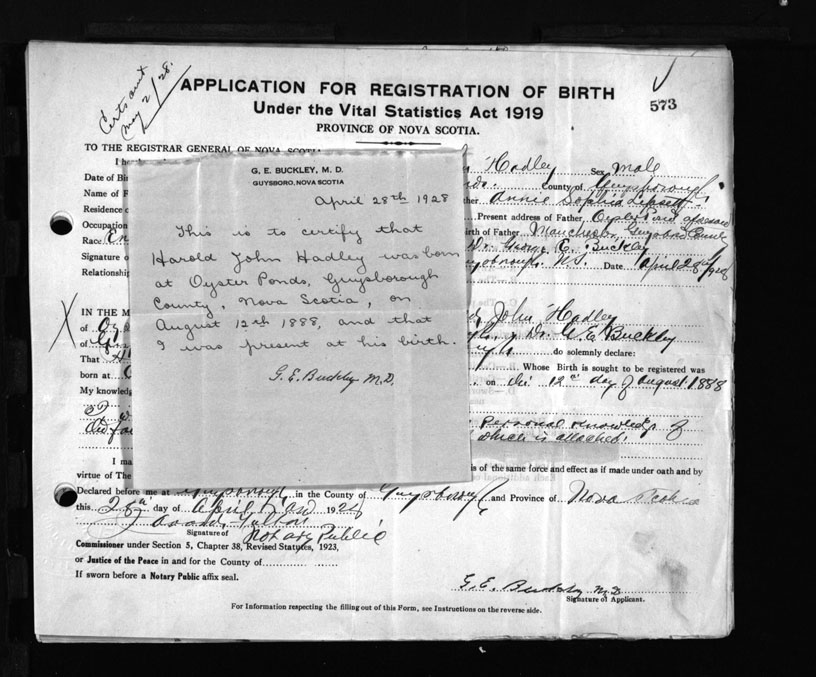 Certs sent
May 2/28.
APPLICATION FOR REGISTRATION OF BIRTH
Under the Vital Statistics Act 1919
573
PROVINCE OF NOVA SCOTIA.
TO THE REGISTRAR GENERAL OF NOVA SCOTIA
I
Hadley Sex Male
Date of Bi
County of Guysborough
Name of F
ther Annie Sophia Lipsett
Residence o
Present address of Father Oyster Pond
Occupation
irth of Father Manchester,
Race
Dr. George E. Buckley
Signature o
N.S. Date April 28th 1928
Relationshi
G. E. BUCKLEY, M. D.
GUYSBORO, NOVA SCOTIA
April 28th 1928
This is to certify that
Harold John Hadley was born
at Oyster Ponds, Guysborough
County, Nova Scotia, on
August 12th 1888, and that
I was present at his birth.
G. E. Buckley M.D.
IN THE M
John Hadley
of
Dr. G. E. Buckley
of
do solemnly declare:
That
Whose Birth is sought to be registered was
born at
on the 12th day of August 1888
My knowledg
personal knowledge of
which is attached.
I ma
is of the same force and effect as if made under oath and by
virtue of The
Declared before me at Guysboro, in the County of Guysboro, and Province of Nova Scotia
this 28th day of April A.D. 1928
Signature of Notary Public
Commissioner under Section 5, Chapter 38, Revised Statutes, 1923,
or Justice of the Peace in and for the County of
If sworn before a Notary Public affix seal.
G. E. Buckley M.D.
Signature of Applicant.
For Information respecting the filling out of this Form, see Instructions on the reverse side.